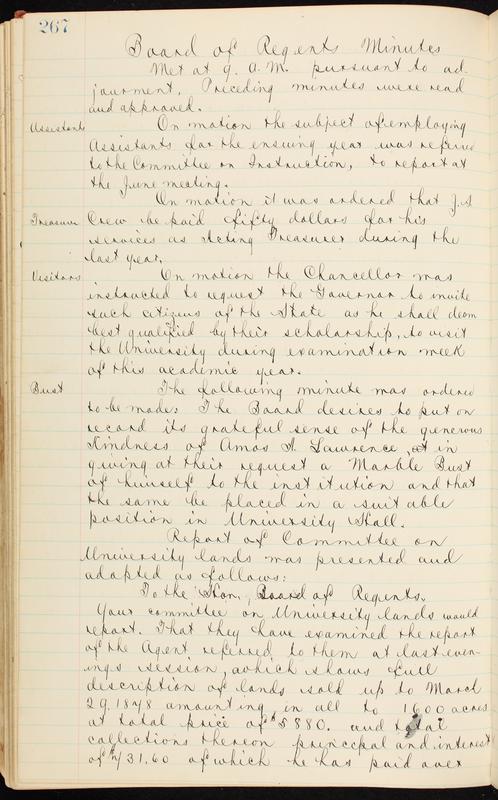 267
Board of Regents Minutes
Met at 9. A.M. pursuant to ad-
journment, Preceding minutes were read
and approved.
Assistants On motion the subject of employing
Assistants for the ensuing year was referred
to the Committee on Instruction, to report at
the June meeting.
On motion it was ordered that J.S
Treasurer Crew be paid fifty dollars for his
services as Acting Treasurer during the
last year.
Visitors On motion the Chancellor was
instructed to request the Governor to invite
such citizens of the State as he shall deem
best qualified by their scholarship, to visit
the University during examination week
of this academic year.
Bust The following minute was ordered
to be made: The Board desires to put on
record its grateful sense of the generous
kindness of Amos A. Lawrence, in
giving at their request a Marble Bust
of himself to the institution and that
the same be placed in a suitable
position in University Hall.
Report of Committee on
University lands was presented and
adopted as follows:
To the Hon, Board of Regents.
Your committee on University lands would
report. That they have examined the report
of the Agent referred to them at last even-
ings session, which shows full
description of lands sold up to March
29, 1878 amounting in all to 1600 acres
at total price of $ 5880. and total
collections thereon principal and interest
of of which he has paid over